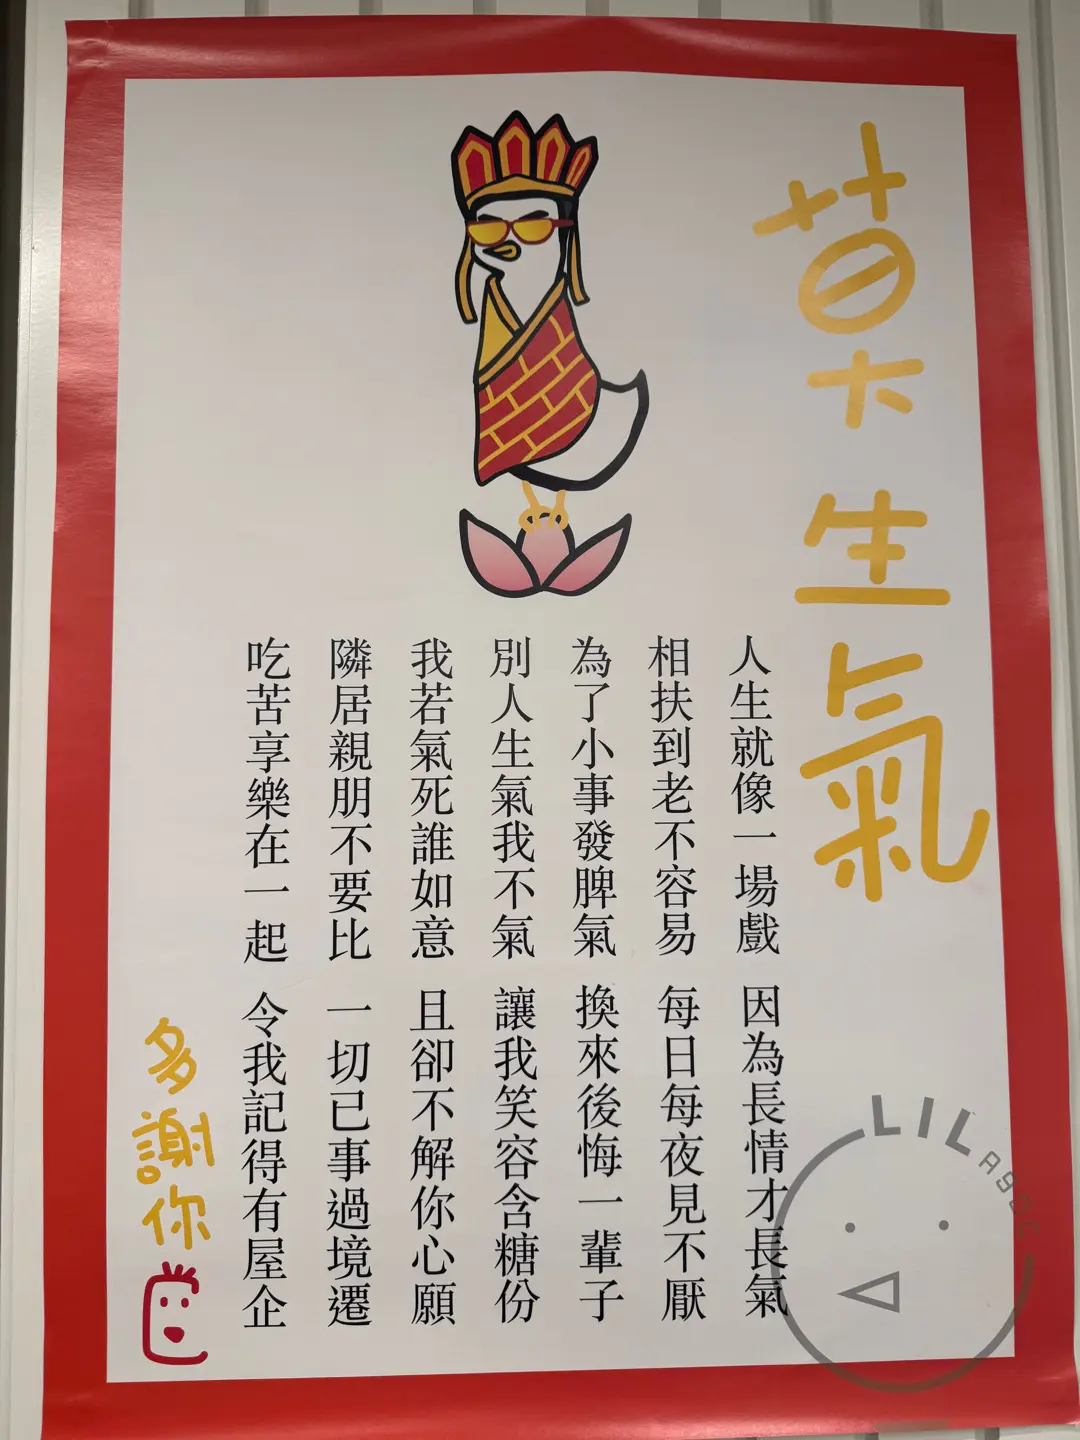 莫生氣
人生就像一場戲 因為長情才長氣
相扶到老不容易 每日每夜見不厭
為了小事發脾氣 換來後悔一輩子
別人生氣我不氣 讓我笑容含糖份
我若氣死誰如意 且卻不解你心願
隣居親朋不要比 一切已事過境遷
吃苦享樂在一起 令我記得有屋企
多謝你
LIL